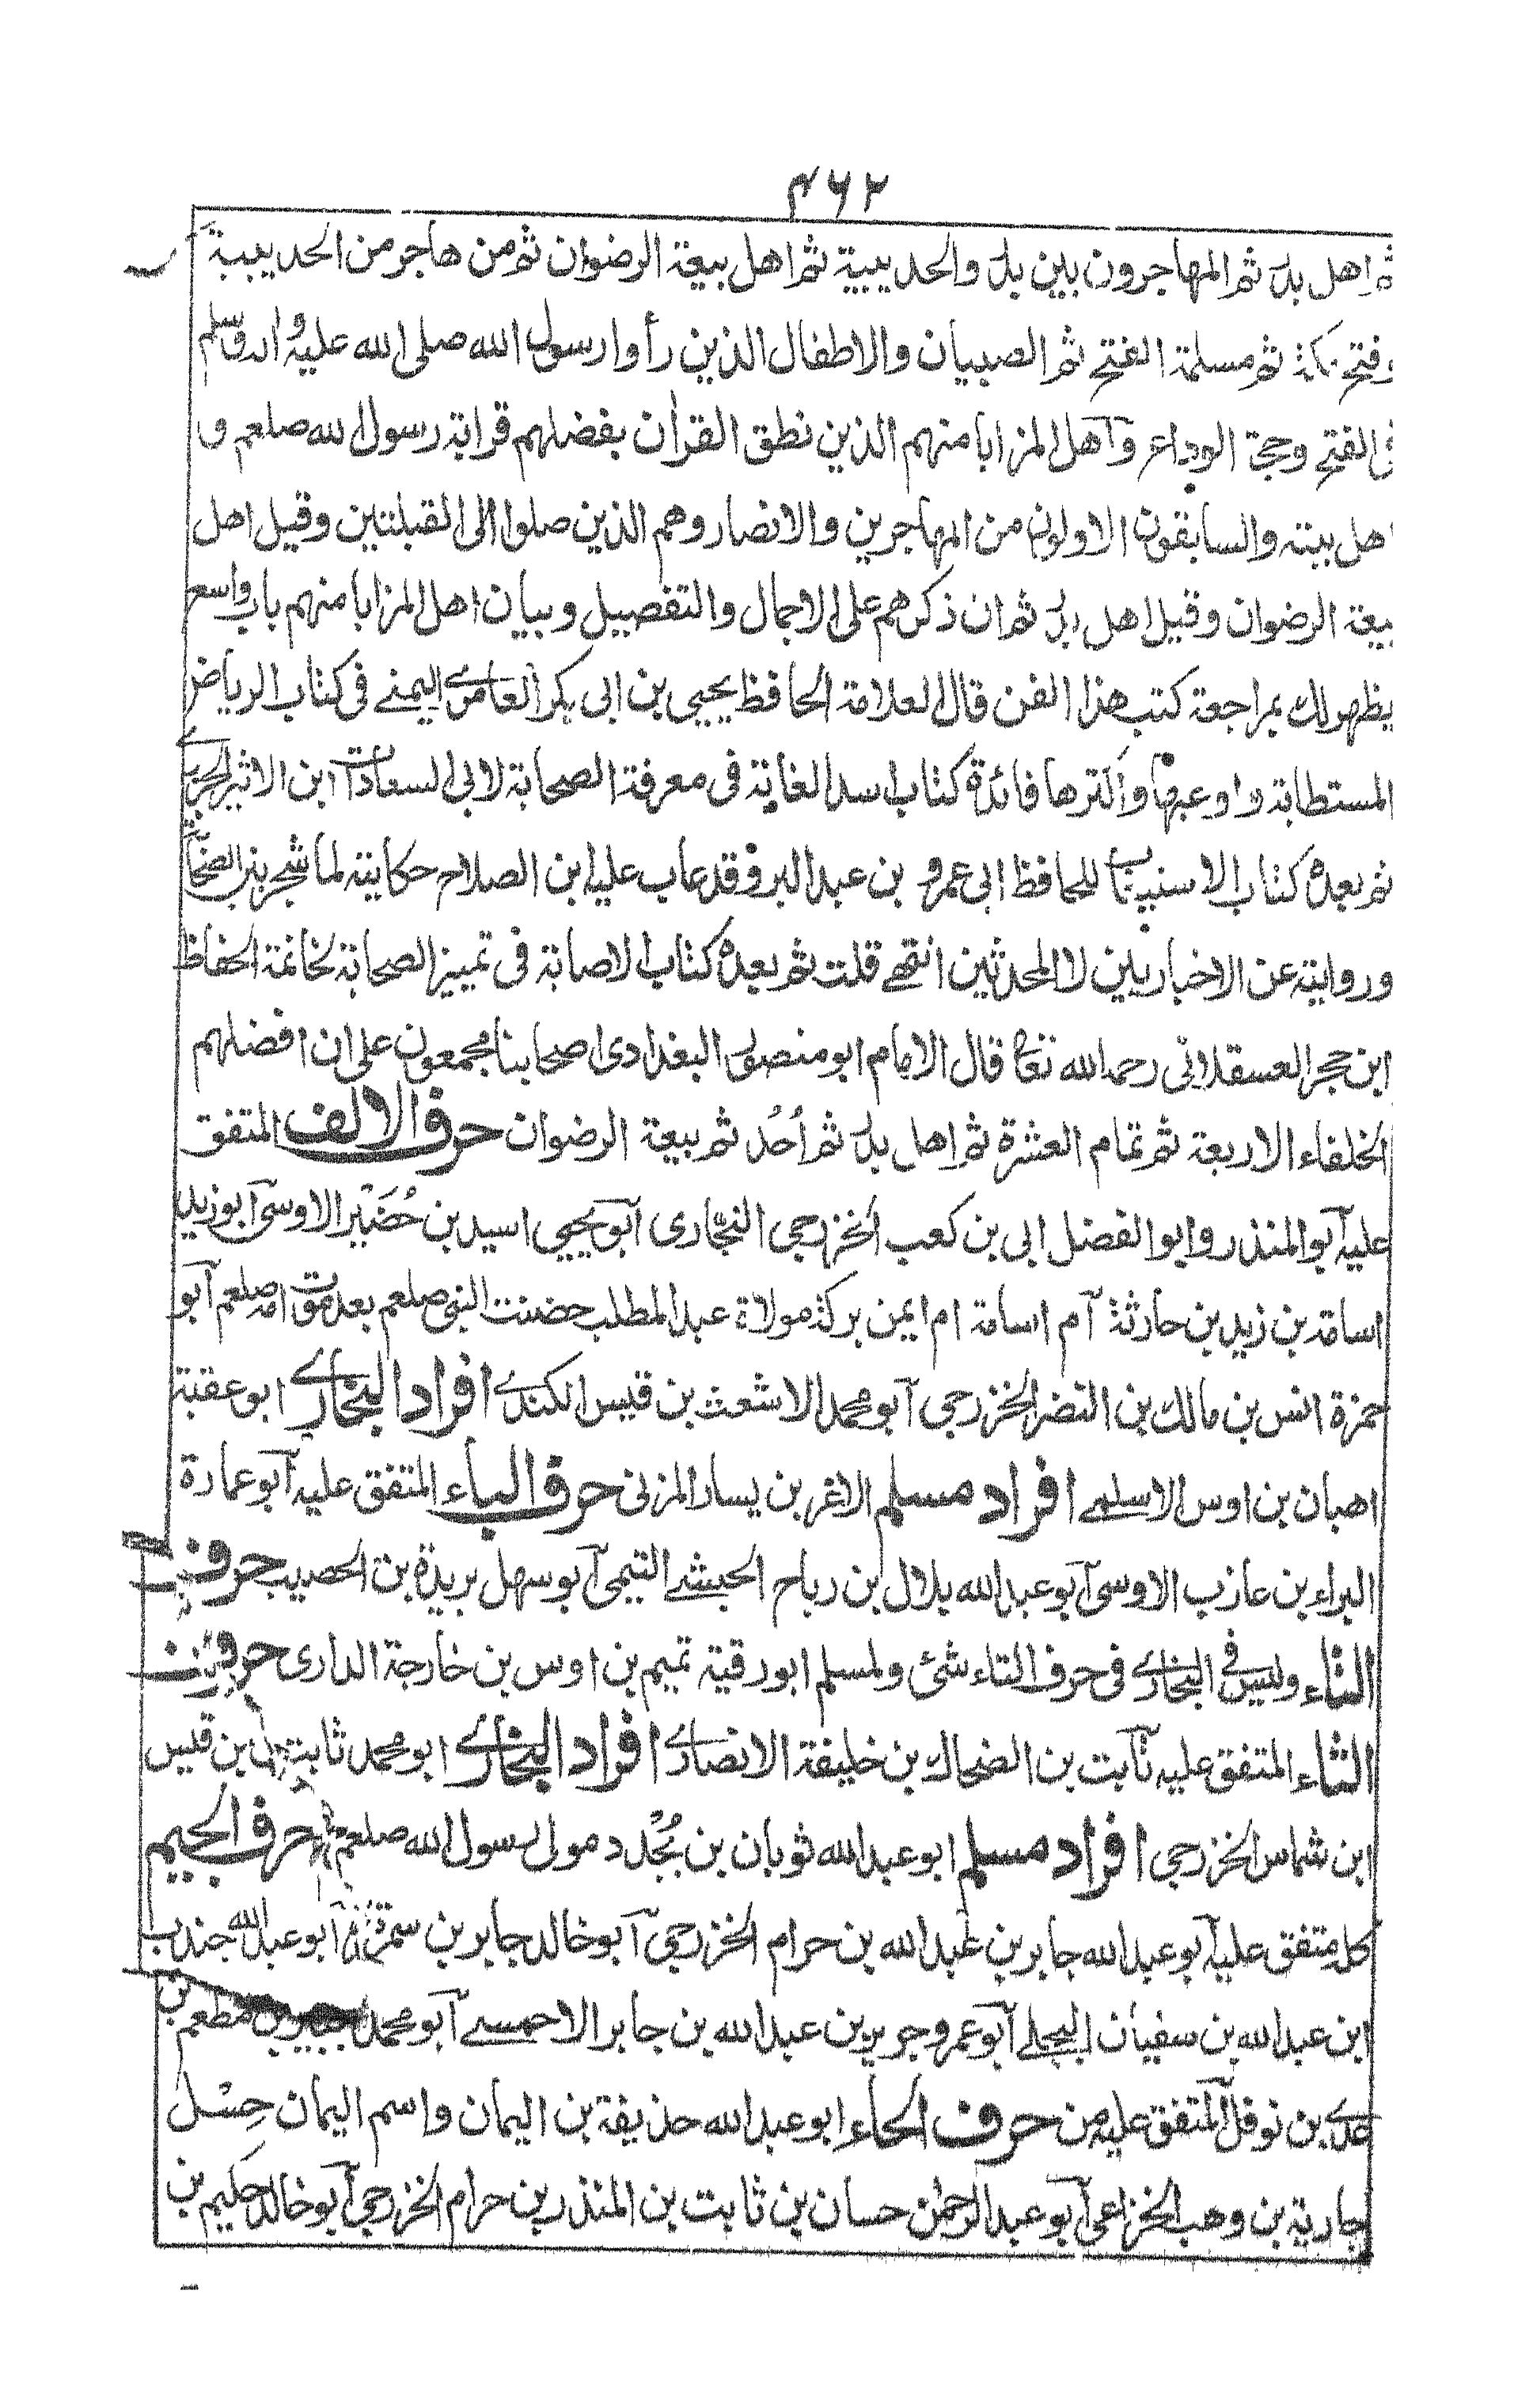 ۴۶۲
ثم اهل بدر ثم المهاجرون بين بدر والحديبية ثم اهل بيعة الرضوان ثم من هاجر من الحديبية
وفتح مكة ثم مسلمة الفتح ثم الصبيان والاطفال الذين رأوا رسول الله صلى الله عليه واله وسلم
فى الفتح وحجة الوداع وآهل المزايا منهم الذين نطق القرآن بفضلهم قرابة رسول الله صلعم و
اهل بيته والسابقون الاولون من المهاجرين والانصار وهم الذين صلوا الى القبلتين وقيل اهل
بيعة الرضوان وقيل اهل بدر ثم ان ذكرهم على الاجمال والتفصيل وبيان اهل المزايا منهم باب واسع
يظهر لك بمراجعة كتب هذا الفن قال العلامة الحافظ يحيى بن ابى بكر العامرى اليمنى فى كتاب الرياض
المستطابة واوعبها وأكثرها فائدة كتاب اسد الغابة فى معرفة الصحابة لابى السعادات ابن الاثير الجزرى
ثم بعده كتاب الاستيعاب للحافظ ابى عمرو بن عبد البر وقد عاب عليه ابن الصلاح حكايته لما شجر بين الصحابة
وروايته عن الاخباريين لا المحدثين انتهى قلت ثم بعده كتاب الاصابة فى تمييز الصحابة لخاتمة الحفاظ
ابن حجر العسقلانى رحمه الله تعالى قال الامام ابو منصور البغدادى اصحابنا مجمعون على ان افضلهم
الخلفاء الاربعة ثم تمام العشرة ثم اهل بدر ثم أُحُد ثم بيعة الرضوان حرف الالف المتفق
عليه آبو المنذر وابو الفضل ابى بن كعب الخزرجى النجّارى آبو يحيى اسيد بن حُضَيْر الاوسى آبو زيد
اسامة بن زيد بن حارثة آم اسامة ام ايمن بركة مولاة عبد المطلب حضنت النبى صلعم بعد موت امه صلعم آبو
حمزة انس بن مالك بن النضر الخزرجى آبو محمد الاشعث بن قيس الكندى افراد البخارى ابو عقبة
اهبان بن اوس الاسلمى افراد مسلم الاغر بن يسار المزنى حرف الباء المتفق عليه آبو عمارة
البراء بن عازب الاوسى آبو عبد الله بلال بن رباح الحبشى التيمى آبو سهل بريدة بن الحصيب حرف
التاء وليس فى البخارى فى حرف التاء شئ ولمسلم ابو رقية تميم بن اوس بن خارجة الدارى حرف
الثاء المتفق عليه ثآبت بن الضحاك بن خليفة الانصارى افراد البخارى ابو محمد ثابت بن قيس
ابن شماس الخزرجى افراد مسلم ابو عبد الله ثوبان بن بُجْدد مولى رسول الله صلعم حرف الجيم
كل متفق عليه آبو عبد الله جابر بن عبد الله بن حرام الخزرجى آبو خالد جابر بن سمرة آبو عبد الله جندب
ابن عبد الله بن سفيان البجلى آبو عمرو جرير بن عبد الله بن جابر الاحمسى آبو محمد جبير بن مطعم بن
عدى بن نوفل المتفق عليه من حرف الحاء ابو عبد الله حذيفة بن اليمان واسم اليمان حِسْل
جارية بن وهب الخزاعى آبو عبد الرحمن حسان بن ثابت بن المنذر بن حرام الخزرجى آبو خالد حكيم بن